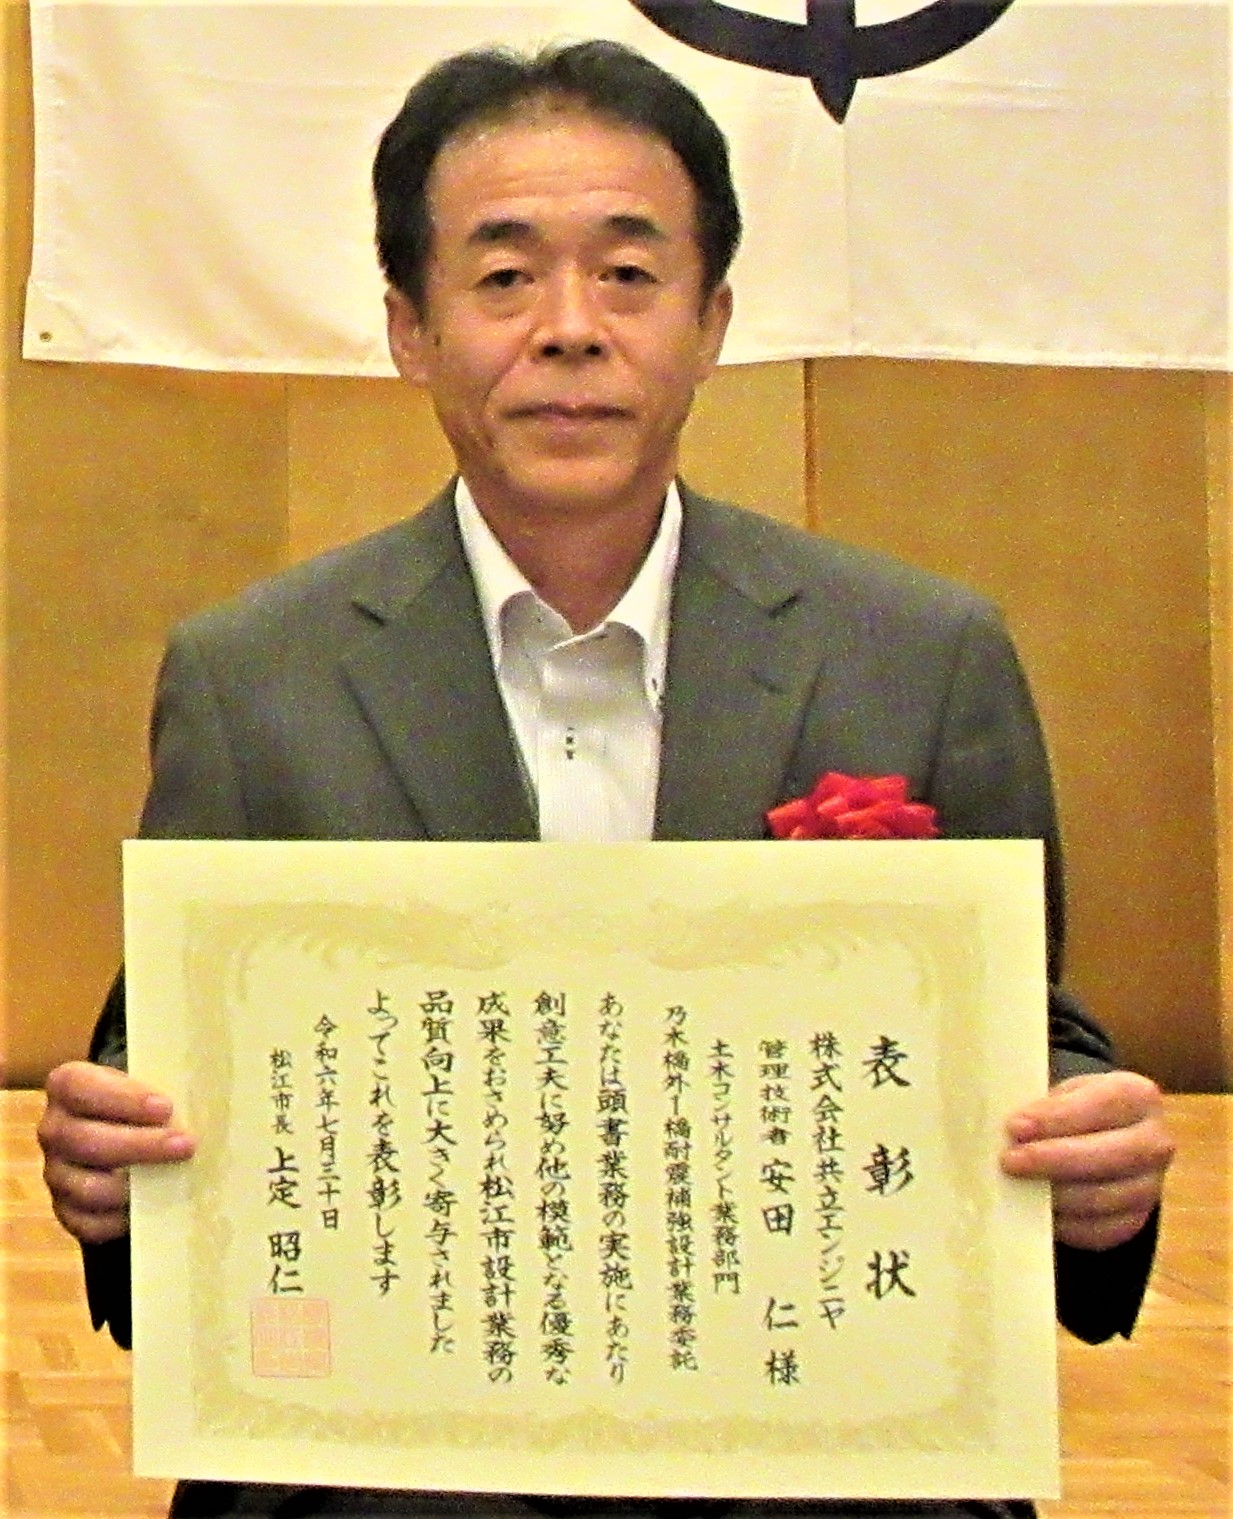 表彰状
株式会社共立エンジニヤ
管理技術者 安田 仁 様
土木コンサルタント業務部門
乃木橋外1橋耐震補強設計業務委託
あなたは頭書業務の実施にあたり
創意工夫に努め他の模範となる優秀な
成果をおさめられ松江市設計業務の
品質向上に大きく寄与されました
よってこれを表彰します
令和六年七月三十日
松江市長 上定 昭仁